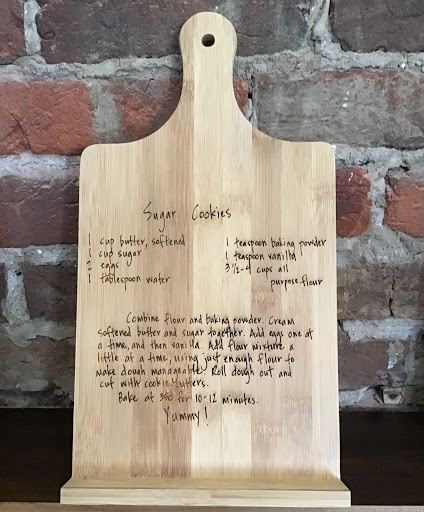 Sugar Cookies
1 cup butter, softened
1 cup sugar
2 eggs
1 tablespoon water
1 teaspoon baking powder
1 teaspoon vanilla
3 1/2-4 cups all
purpose flour
Combine flour and baking powder. Cream
softened butter and sugar together. Add eggs one at
a time, and then vanilla. Add flour mixture a
little at a time, using just enough flour to
make dough manageable. Roll dough out and
cut with cookie cutters.
Bake at for 10-12 minutes.
Yummy!